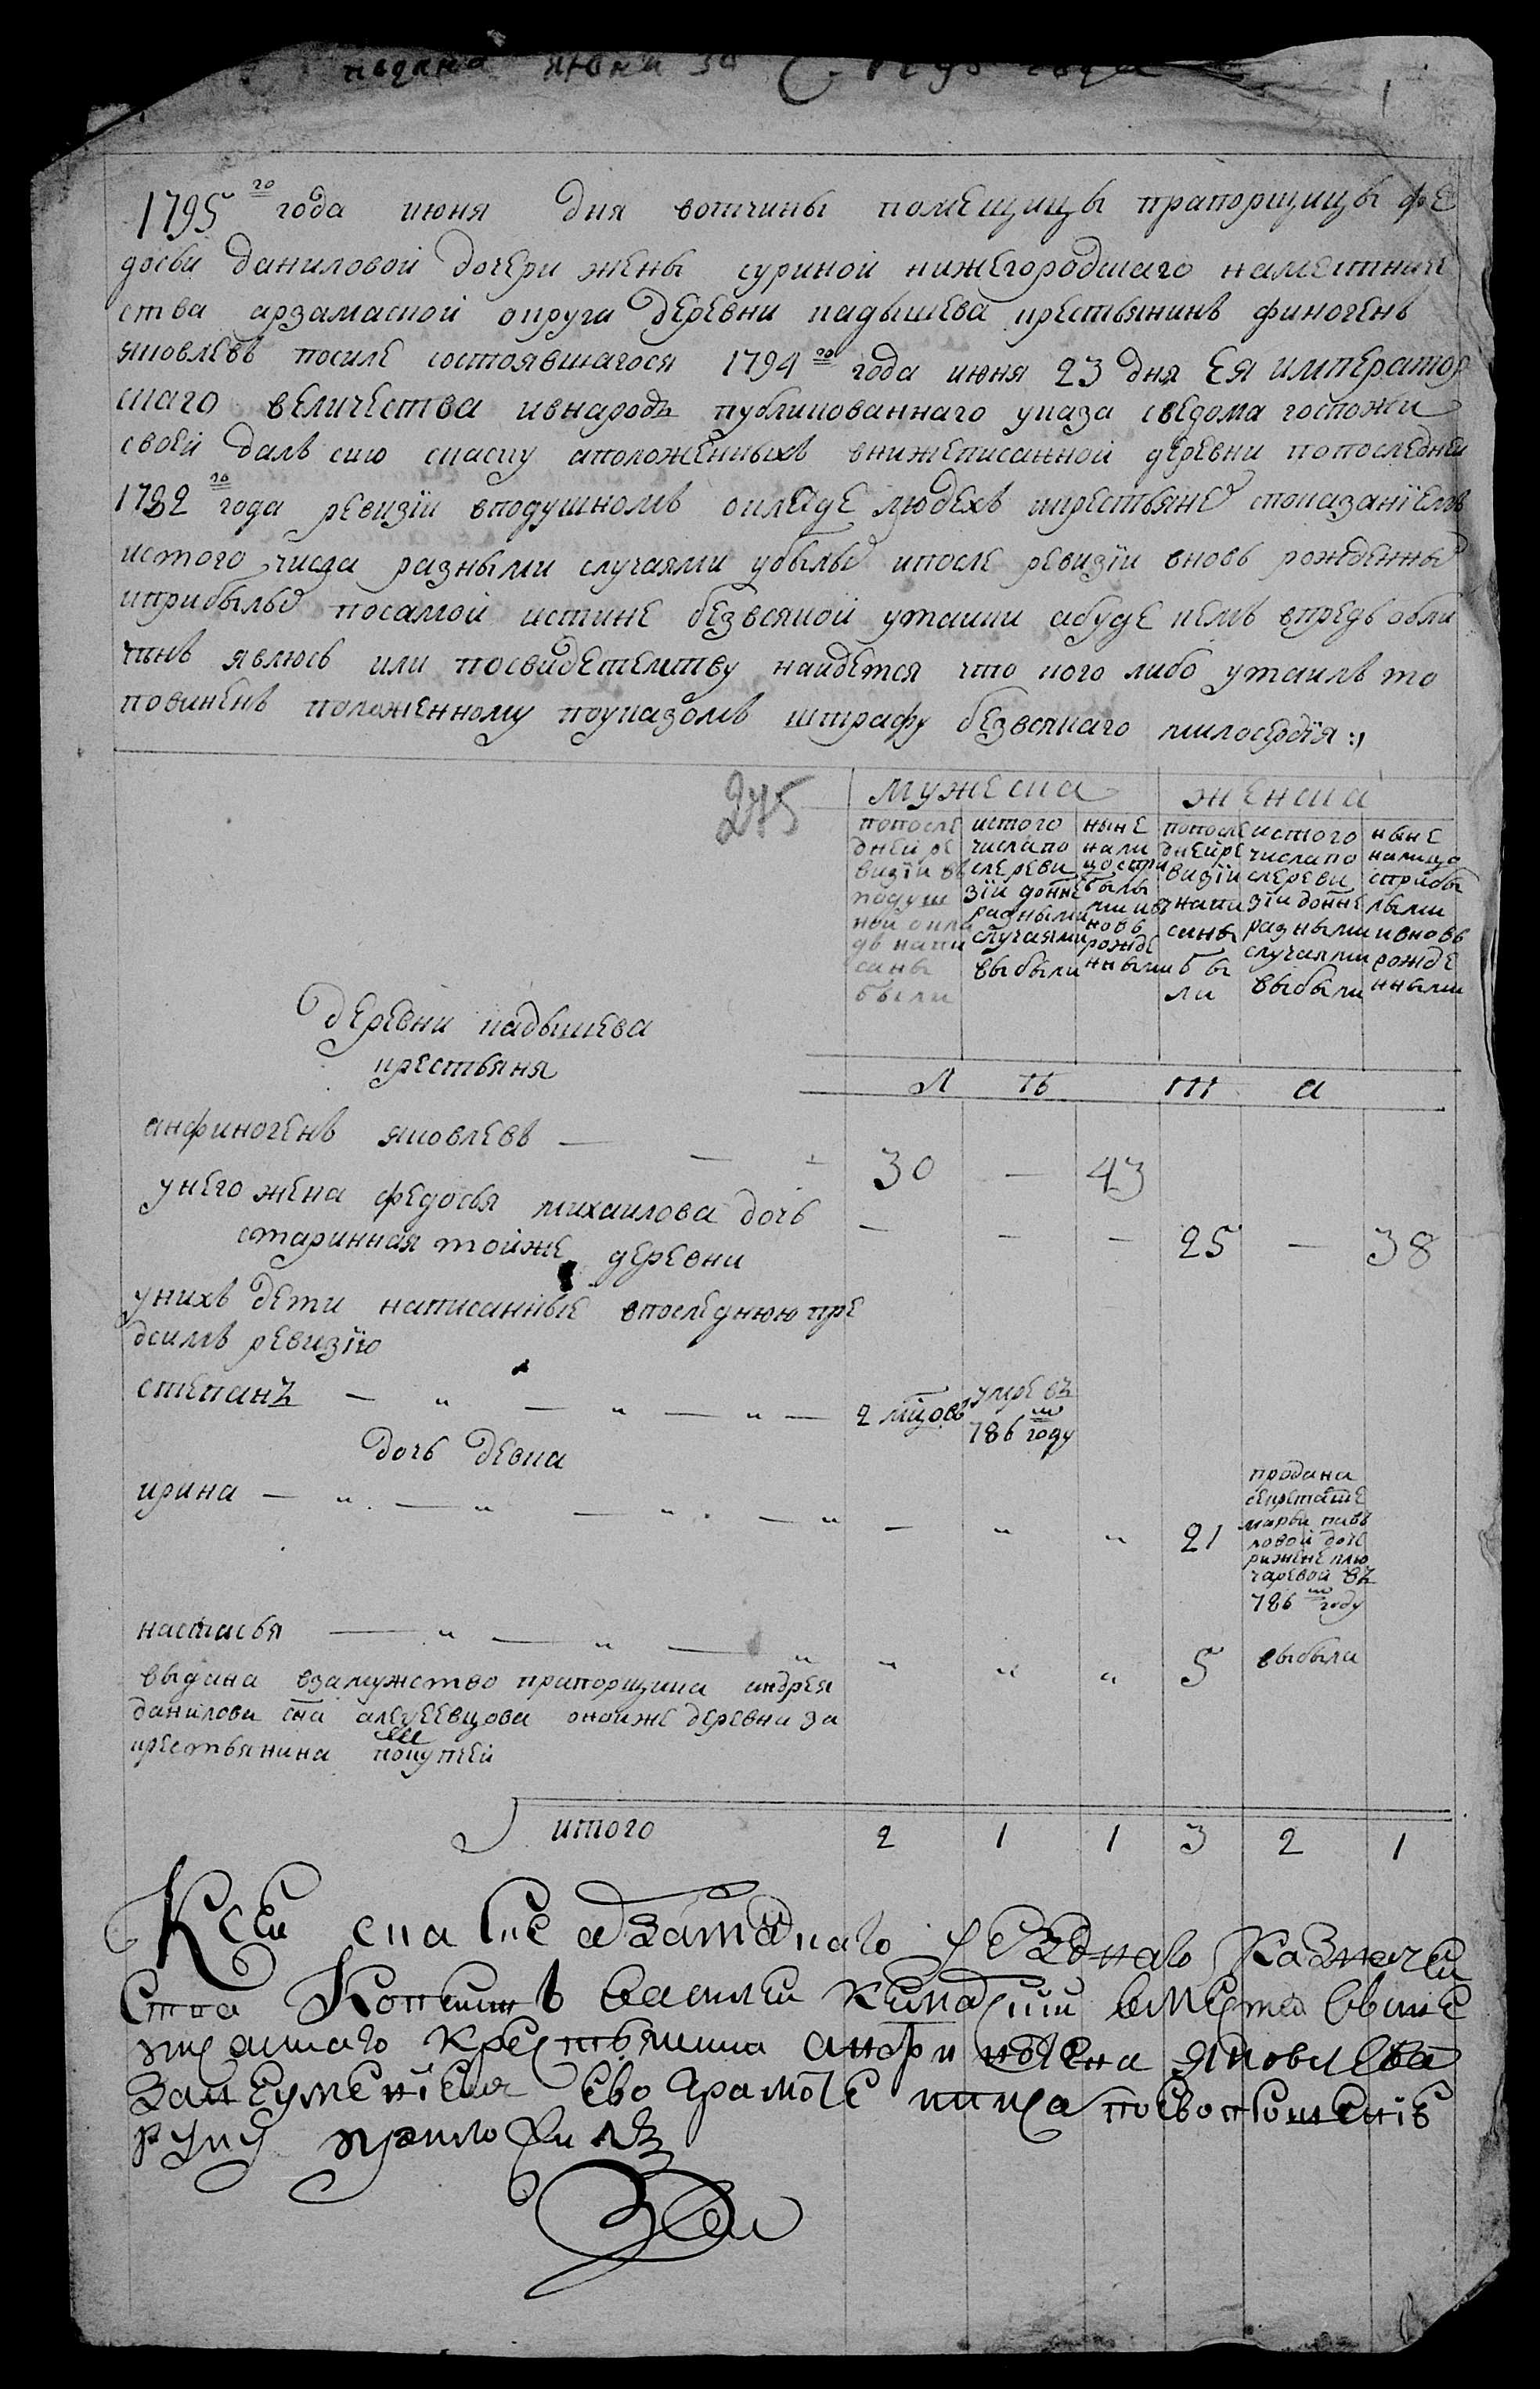 подана июня 30 1795 года
1
1795 го года июня дня вотчины помещицы прапорщицы фе
досьи даниловой дочери жены суриной нижегородскаго наместниче
ства арзамаской округи деревни кадышева крестьянинъ финогенъ
яковлевъ посиле состоявшагося 1794 го года июня 23 дня Ея император
скаго величества ивнародъ публикованнаго указа сведома госпожи
своей далъ сию скаску оположенныхъ внижеписанной деревни попоследней
1782 го года ревизїи вподушномъ окладе людехъ икрестьяне споказанїемъ
истого числа разными случаями убылые ипосле ревизїи вновь рожденные
иприбылые посамой истине безвсякой утаики абуде кемъ впредь обли
ченъ явлюсь или посвидетельтву найдется что кого либо утаилъ то
повиненъ положенному поуказомъ штрафу безвсякаго милосердїя :,
275
мужеска женска
попосле дней ре визїи въ подуш ной окла дъ напи саны были
истого числа по сле реви зїи доные разными случаями выбыли
ныне нали цо спри былы ми ив новь рожде нными
попосле дней ре визїи напи саны бы ли
истого числа по сле реви зїи доные разными случаями выбыли
ныне налицо сприбы лыми ивновь рожде нными
деревни кадышева
крестьяня
л ѣ т а
анфиногенъ яковлевъ — — — 30 — 43
унего жена федосья михаилова дочь
старинная тойже деревни — — — 25 — 38
унихъ дети написанные впоследнюю пре
дсимъ ревизїю
степанъ — „ — „ — „ — 2 мцовъ умре въ 786 м году
дочь девка
ирина — „ — „ — „ — „ — „ „ 21 продана секретарше марьи павловой доче ри жене клю чаревой въ 786 м году
настасья — „ — „ — „ „ „ „ 5 выбыла
выдана взамужство прапорщика андрея
данилова сна алексеевцова онойже деревни за
крестьянина покупкей
итого 2 1 1 3 2 1
Ксей скаске арзамаскаго уезднаго Казначей
ства Копеистъ василей вместо выше
писаннаго Крестьянина анфиногена яковлева
занеумениемъ ево Грамоте писат поево прошению
руку приложилъ